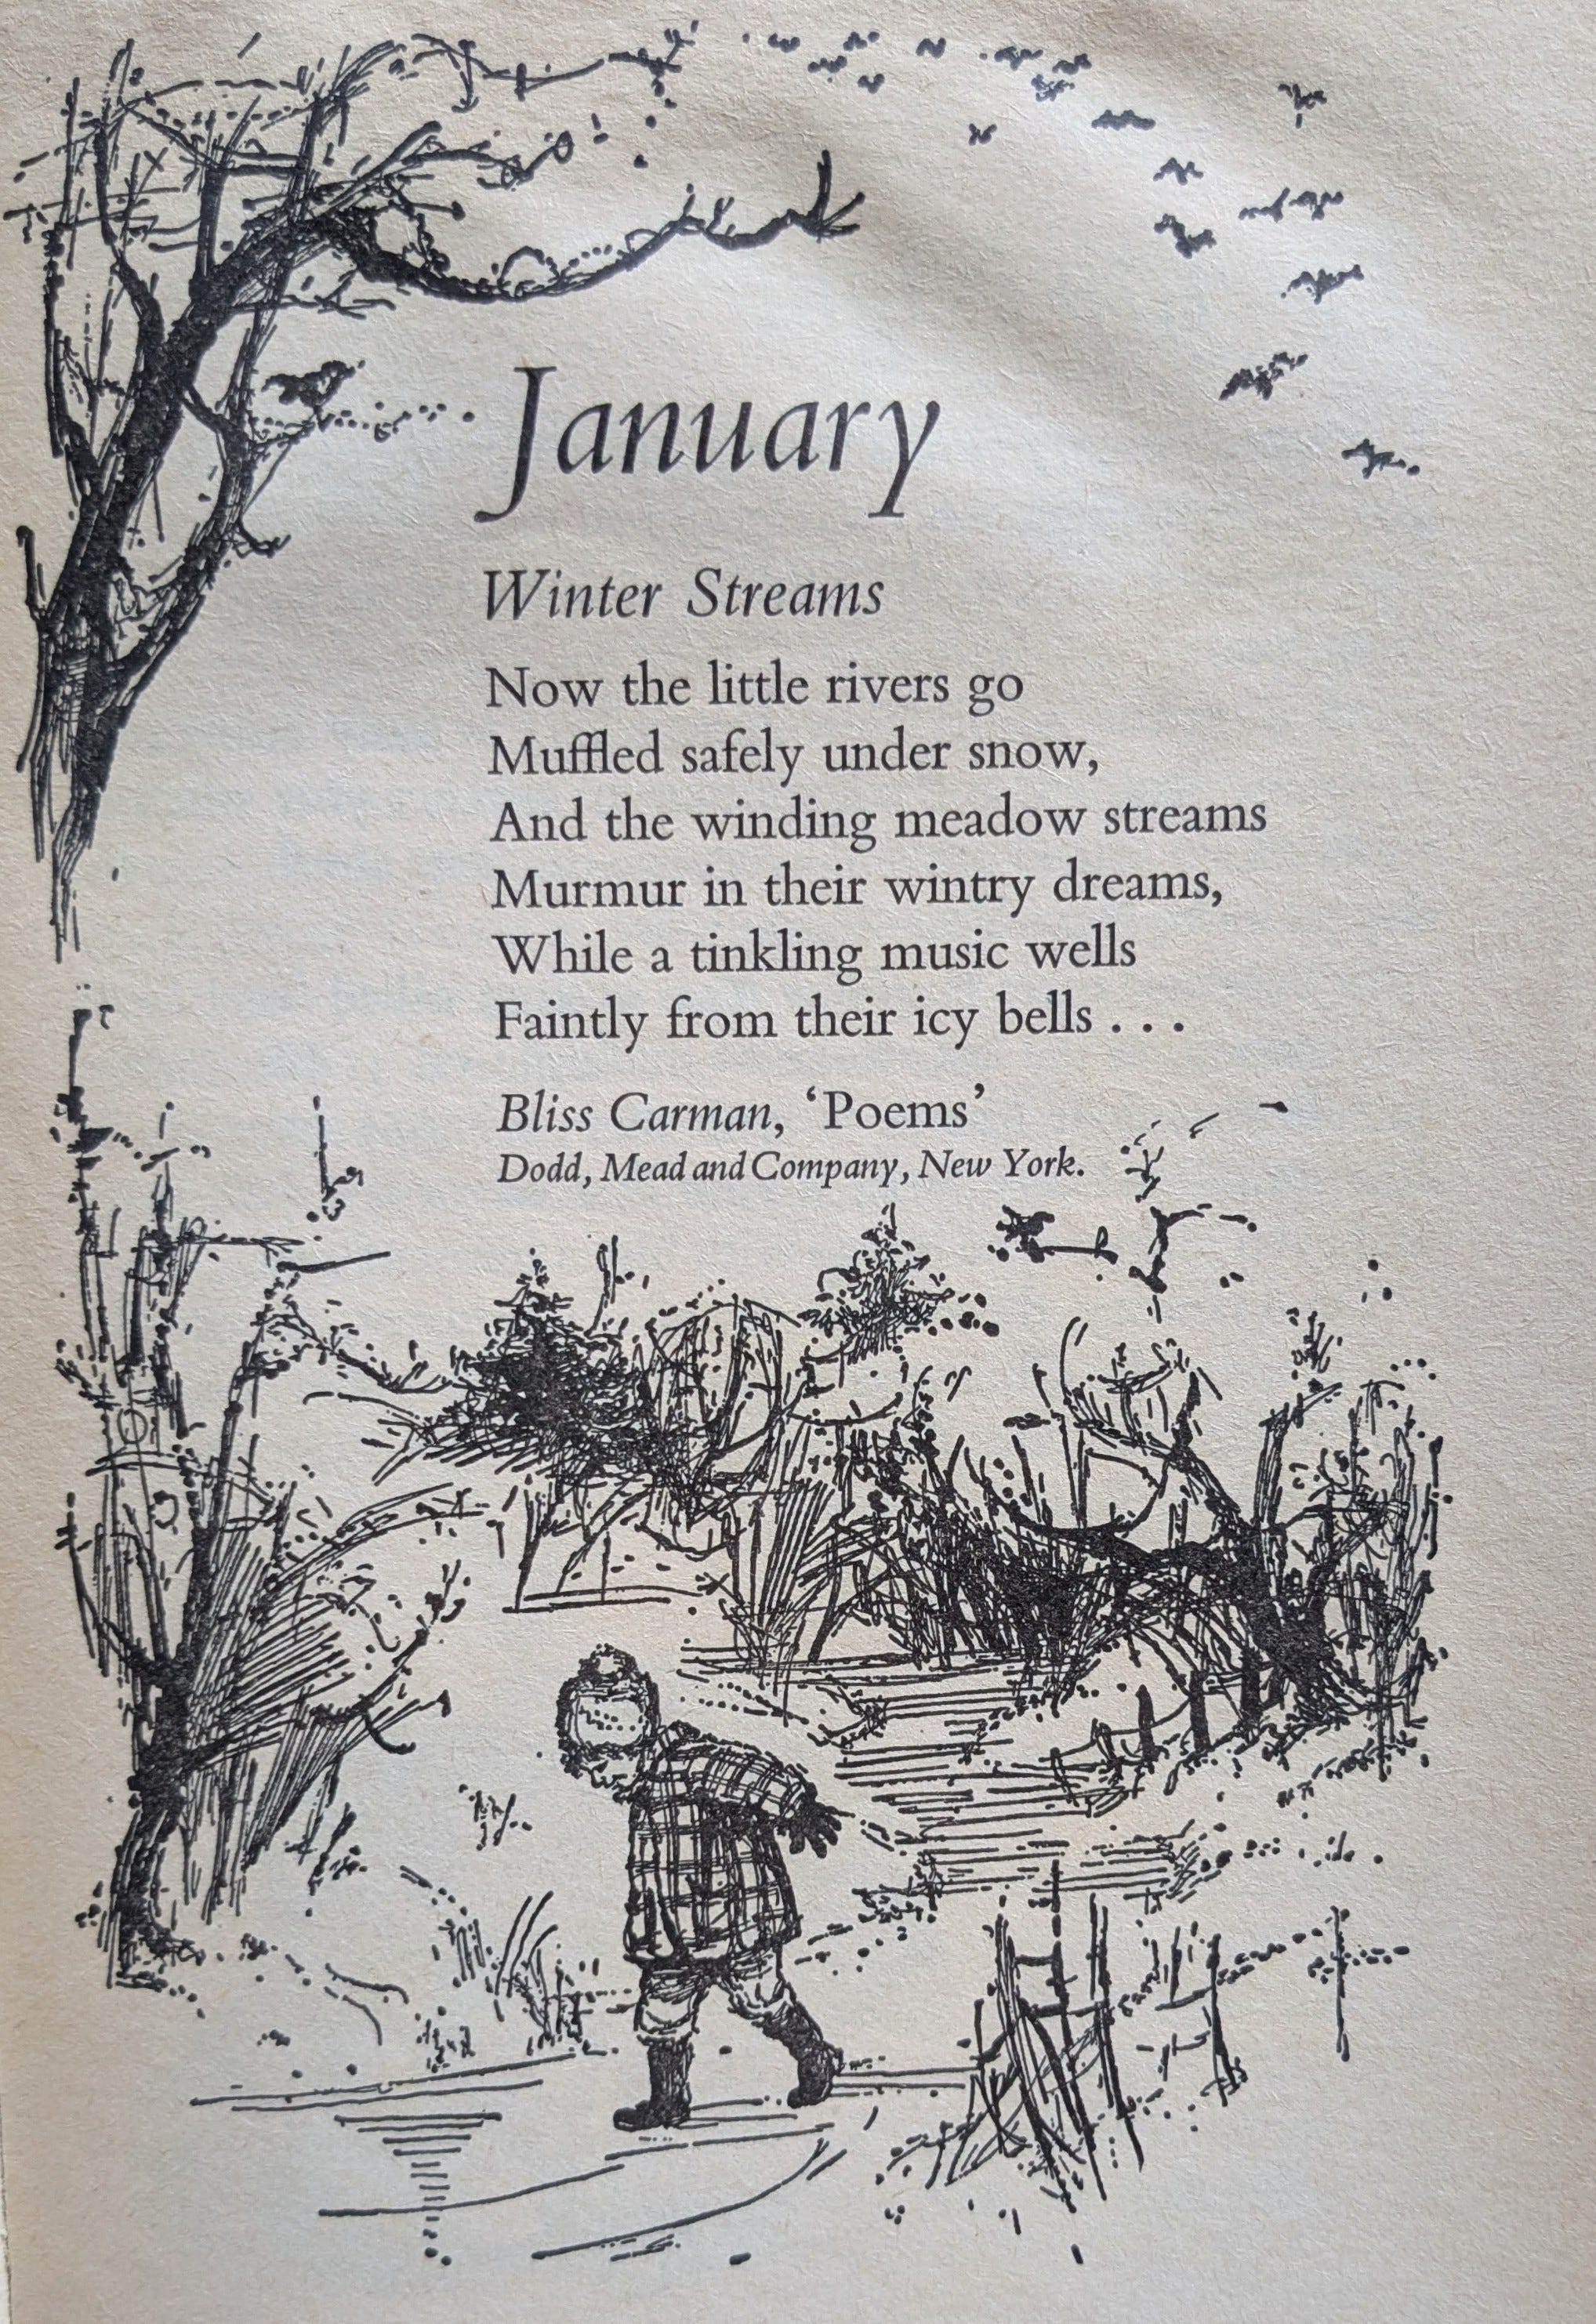 January
Winter Streams
Now the little rivers go
Muffled safely under snow,
And the winding meadow streams
Murmur in their wintry dreams,
While a tinkling music wells
Faintly from their icy bells . . .
Bliss Carman, ‘Poems’
Dodd, Mead and Company, New York.